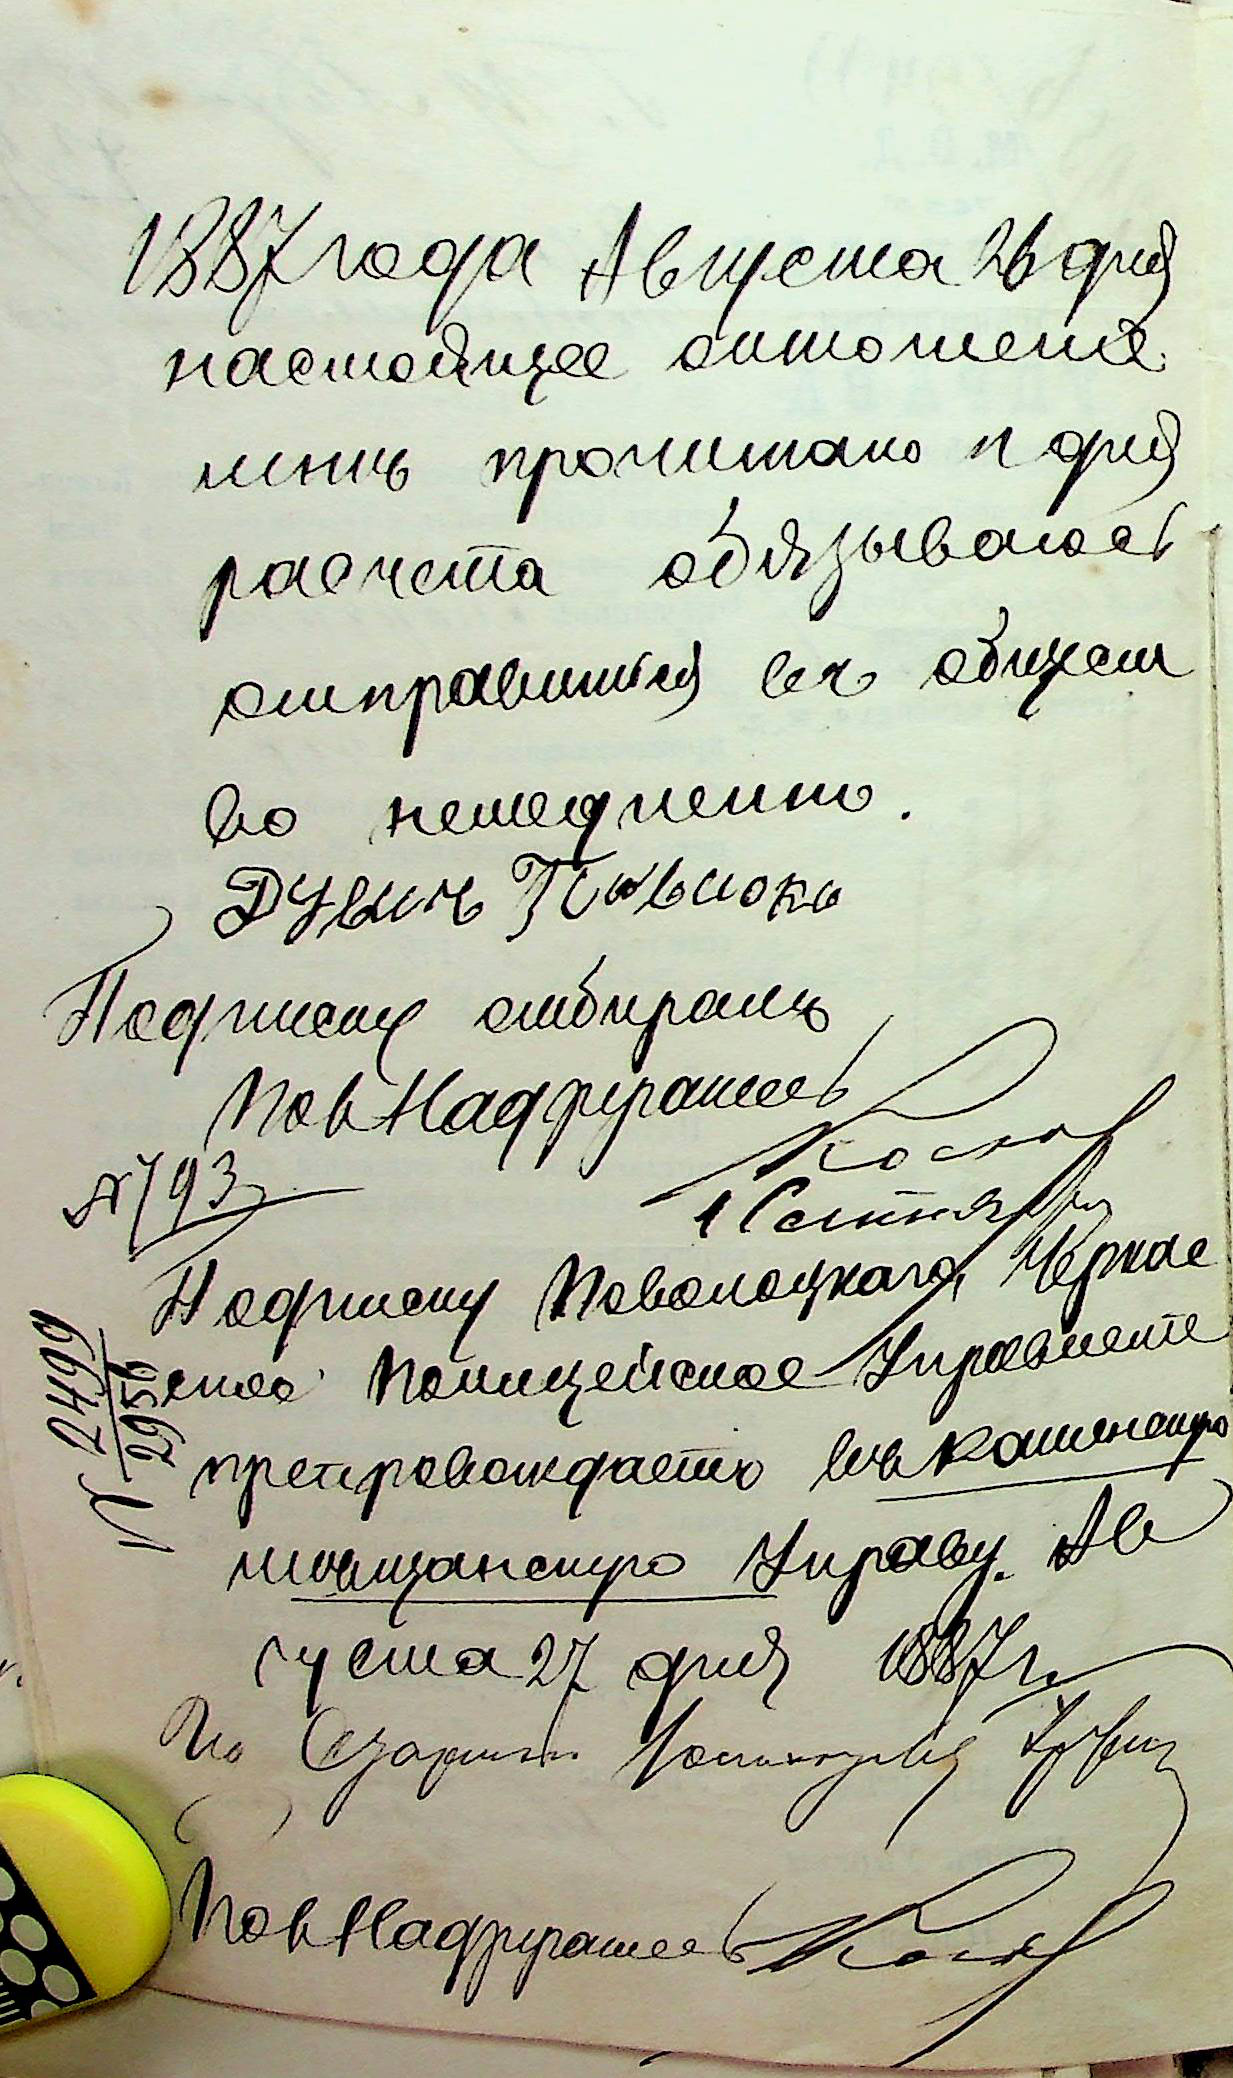 1887 года Августа 26 дня
настоящее отношение
мнѣ прочитано и для
расчета обязываюсь
отправится въ общест
во немедленно.
Подписку отбиралъ
Пол Надзиратель
№ 793
1 Сентября
Подписку Поволоцкаго, Черкас
ское Полицейское Управление
препровождаетъ въ Каменскую
мѣщанскую Управу. Ав
густа 27 дня 1887 г.
№ 2499
2956
Пол Надзиратель